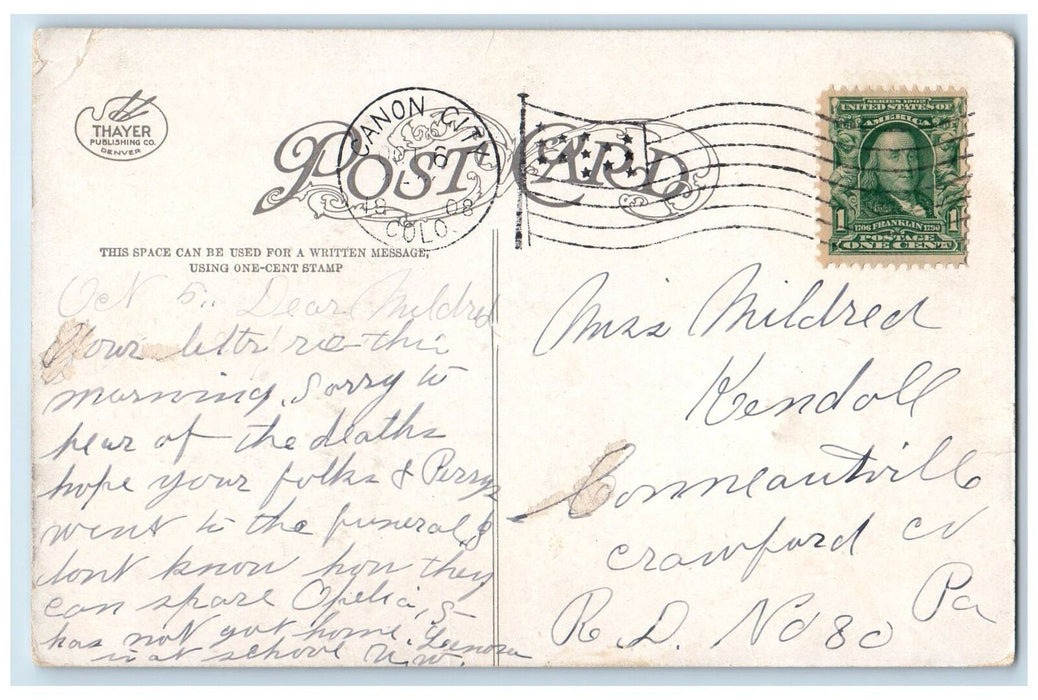 THAYER
PUBLISHING CO.
DENVER
POST CARD
CANON CITY
6
08
COLO.
SERIES 1902
UNITED STATES OF
AMERICA
1 1
1706 FRANKLIN 1790
POSTAGE
ONE CENT
THIS SPACE CAN BE USED FOR A WRITTEN MESSAGE,
USING ONE-CENT STAMP
Oct 5. Dear Mildred
Your lettr rec this
morning. Sorry to
hear of the deaths
hope your folks & Perrys
went to the funeral. I
dont know how they
can spare Opelia, S-
has not got home.
is at school
Miss Mildred
Kendall
Conneautville
Crawford co
Pa
R. D. No 80